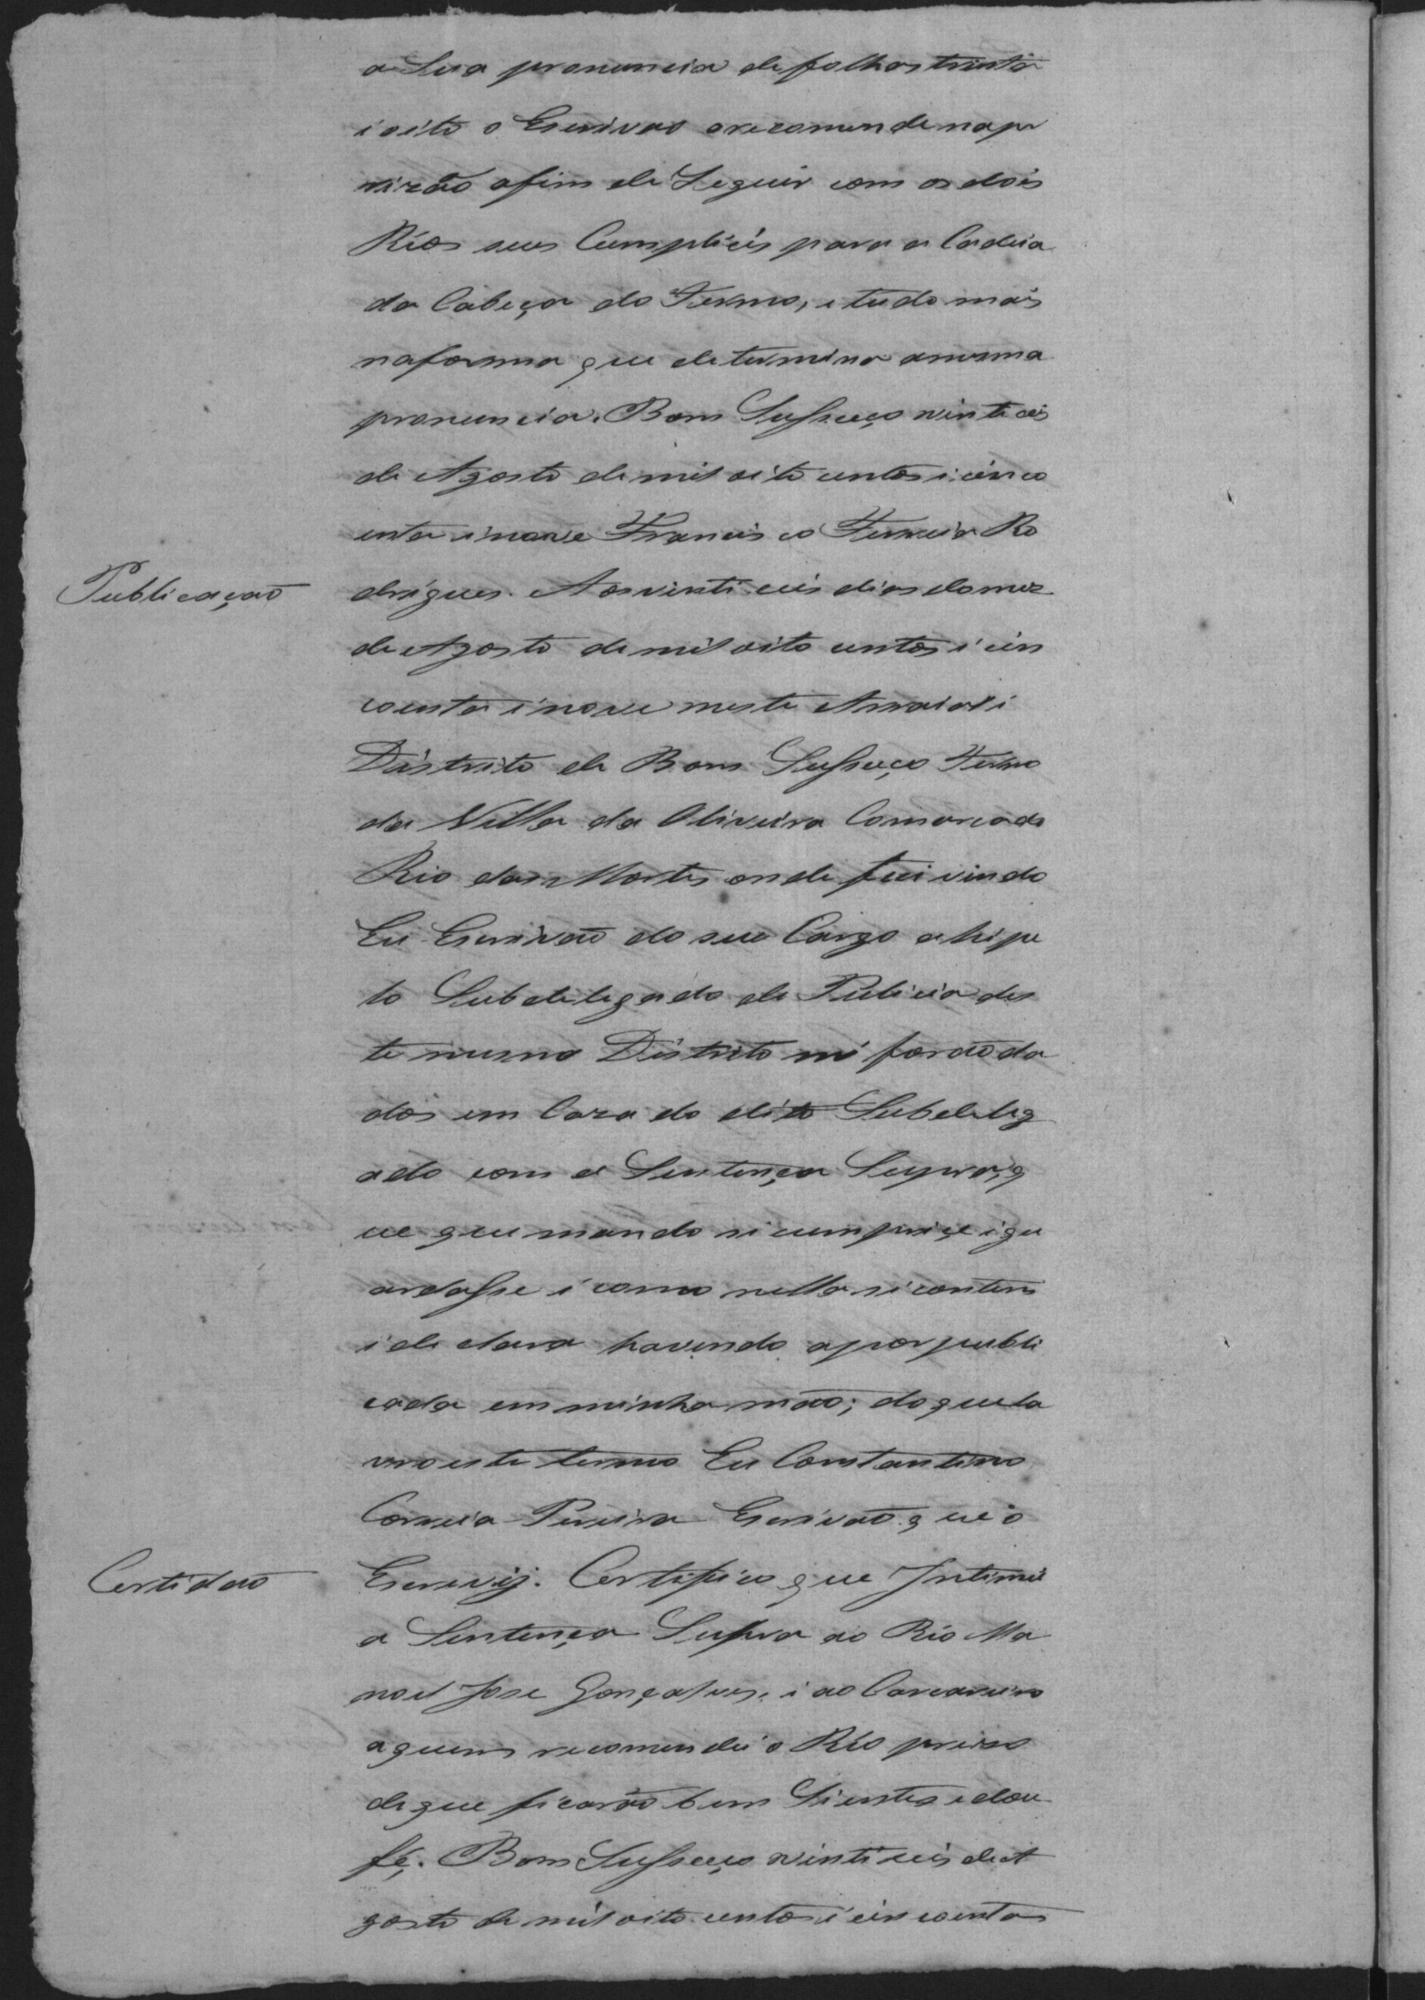 a Sua pronuncia de folhas trinta
i oito o Escrivao o recomende na pr
izão afim de Seguir com os dois
Réos seus Cumplicis para a Cadeia
da Cabeça do Termo, e tudo mais
na forma que determina a mesma
pronuncia. Bom Susseço vinte ceis
de Agosto de mil oito centos i cinco
enta i nove Francisco Ferreira Ro
Publicação
drigues. Aos vinti ceis dias do mez
de Agosto de mil oito centos i cin
coenta i nove neste Arraial i
Distrito de Bom Susseço Termo
da Villa da Oliveira Comarca do
Rio das Mortes onde fui vindo
Eu Escrivão do seu Cargo ahi pe
lo Subdelegado de Pulicia des
te mesmo Distrito mi forão da
dos em Caza do dito Subeleg
ado com a Sentença Supra, q
ue que mando si cumprice i gu
ardasse i como nella si contem
i declara havendo a por publi
cada em minha mão; do que la
vro este termo Eu Constantino
Correia Pereira Escrivão que o
Certidão
Escrevij. Certifico que Intimei
a Sentença Supra ao Rio Ma
noel Jose Gonçalves, i ao Carcareiro
a quem recomendei o Réo prezo
de que ficarão bem Sientes e dou
fé. Bom Susseço vinti ceis de A
gosto de mil oito centos i cincoenta